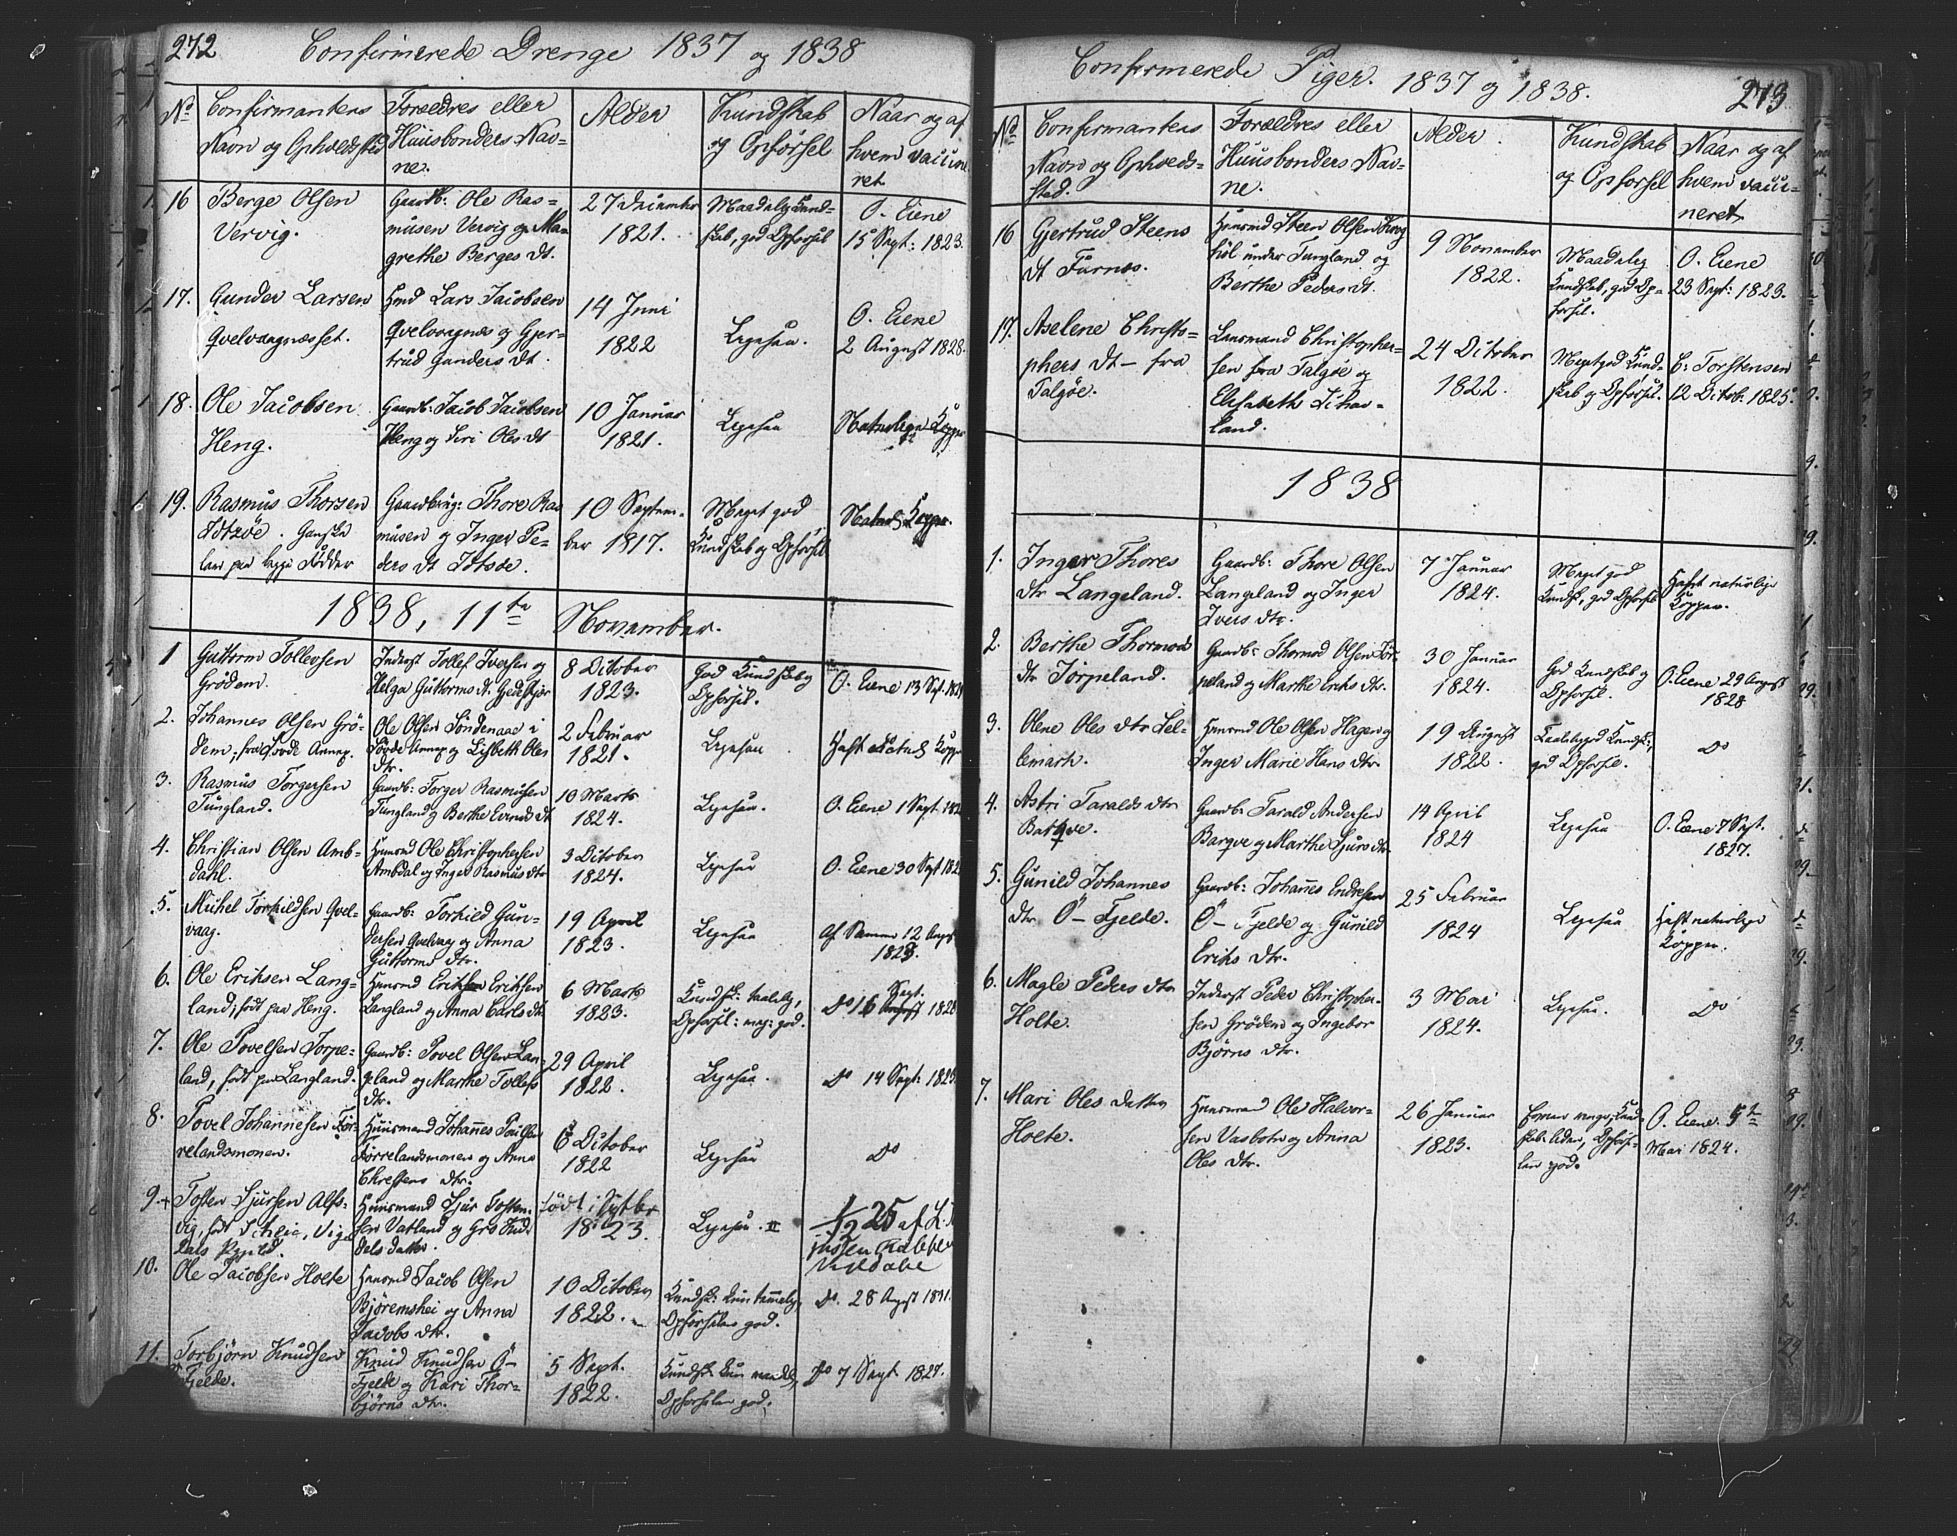 272 Confirmerede Drenge 1837 og 1838
No Confirmantens Navn og Opholdssted
Forældres eller Huusbonders Navne.
Alder
Kundskab og Opførsel
Naar og af hvem vaccineret
16 Berge Olsen
Vervig.
Gaardb: Ole Ras-
musen Vervig og Ma-
grethe Berges dt.
27 December
1821.
Maadelig Kund-
skab, god Opførsel
O. Eiene
15 Sept: 1823.
17. Gunder Larsen
Qvelvaagnæsset.
Hmd Lars Jacobsen
Qvelvaagnæs og Gjer-
trud Gunders dt.
14 Juni
1822
Ligesaa.
O. Eiene
2 August 1828.
18. Ole Jacobsen
Heng.
Gaardb: Jacob Jacobsen
Heng og Siri Oles dt
10 Januar
1821.
Ligesaa
Naturlige Kopper
19. Rasmus Thorsen
Idtzøe. Ganske
lam paa begge Fødder
Gaardbrug: Thore Ras
musen og Inger Pe-
ders dt Idtsøe.
10 Septem-
ber 1817.
Meget god
Kundskab og Opførsel
Naturl: Kopper.
1838, 11te November.
1 Guttorm Tollevsen
Grödem.
Inderst Tollef Iversen og
Helga Guttorms dt.
8 October
1823.
God Kundskab og
Opførsel.
O. Eiene 13 Sept.
2. Johannes Olsen Grö-
dem, fra Annex.
Ole Olsen Söndenaae i
Annex og Lisbeth Oles
dtr.
2 Februar
1821.
Ligesaa
Haft Naturl: Kopper
3. Rasmus Torgersen
Tungland.
Gaardb: Torger Rasmusen
Tungland og Berthe Evinds dt.
10 Marts
1824.
Ligesaa.
O. Eiene 1 Sept.
4. Christian Olsen Amb-
dahl.
Huusmd Ole Christophersen
Ambdal og Inger Rasmus dtr
3 October
1824.
Ligesaa
O. Eiene 30 Sept
5. Mikel Torkildsen Qvel-
vaag.
Gaardb: Torkild Gun-
dersen Qvelvaag og Anna
Guttorms dtr.
19 April
1823.
Ligesaa
Af Samme 12 Augu
1823.
6. Ole Eriksen Lang-
land, født paa Heng.
Huusmd Eriksen Eriksen
Langland og Anna Carls dtr
6 Marts
1823.
Kundsk: taalelig,
Opførsel: meg: god.
Do 16 Sept. 1828
7. Ole Povelsen Torpe-
land, født paa Langland.
Gaardb: Povel Olsen Lan-
geland og Marthe Tollefs
dtr.
29 April
1822.
Ligesaa.
Do 14 Sept:
8. Povel Johannesen För-
relandsmonen.
Huusmand Johannes Poulsen
Förrelandsmonen og Anna
Chrestens dtr.
6 October
1822
Ligesaa
Do
9. + Tosten Sjursen Alfs-
vig, født i
Huusmand Sjur Tosten-
sen Vatland og Gro Knu
dsdatter
født i Sptbr
1823.
Ligesaa. II
1/2 25 af
10. Ole Jacobsen Holte
Huusmd Jacob Olsen
Björemshei og Anna
Jacobs dtr.
10 October
1822.
Kundsk: kun temmelig,
Opførselen god.
Do. 28 August 1831.
11. Torbjörn Knudsen
Ö Fjelde.
Knud Knudsen Ö-
Fjelde og Kari Thor-
björns dtr.
5 Sept.
1822.
Kundsk: kun maadelig,
Opførselen god.
Do 7 Sept 1827.
Confirmerede Piger. 1837 og 1838. 273
No Confirmantens
Navn og Opholds-
sted.
Forældres eller
Huusbonders Nav-
ne.
Alder.
Kundskab
og Opførsel
Naar og af
hvem vacci-
neret.
16 Gjertrud Steens
dt Furnæs.
Huusmd Steen Olsen
høl under Tungland og
Berthe Peders dt.
9 November
1822.
Maadelig
Kundskab, god Op-
førsel.
O. Eiene
23 Sept: 1823.
17. Aselene Christo-
phers dt - fra
Talgøe.
Lensmand Christopher-
sen fra Talgøe og
Elisabeth
land.
24 October
1822.
Meget god Kund-
skab og Opførsel.
C: Torstensen
12 Octob. 1825.
1838
1. Inger Thores
dtr Langeland.
Gaardb: Thore Olsen
Langeland og Inger
Ivers dtr.
7 Januar
1824.
Meget god
Kundsk, god Opførsel
Haft naturlige
Kopper.
2. Berthe Thormods
dtr Törpeland.
Gaardb: Thormod Olsen Tör-
peland og Marthe Eriks dtr.
30 Januar
1824.
God Kundskab og
Opførsel.
O. Eiene 29 August
1828
3. Olene Oles dtr Sel-
lemark.
Huusmd Ole Olsen Hagen og
Inger Marie Hans dtr.
19 August
1822.
god Opførsel.
Do
4. Astri Taralds dtr
Barqve.
Gaardb: Tarald Andersen
Barqve og Marthe Sjurs dtr.
14 April
1824
Ligesaa
O. Eiene 7 Sept.
1827.
5. Gunild Johannes
dtr Ö-Fjelde.
Gaardb: Johannes Endresen
Ö-Fjelde og Gunild
Eriks dtr.
25 Februar
1824
Ligesaa
Haft naturlige
Kopper.
6. Magle Peders dtr
Holte.
Inderst Peder Christopher-
sen Grödem og Ingebor
Björns dtr.
3 Mai
1824.
Ligesaa.
Do
7. Mari Oles datter
Holte.
Huusmand Ole Halvor-
sen Vasbotn og Anna
Oles dtr.
26 Januar
1823.
O. Eiene. 5te
Mai 1824.